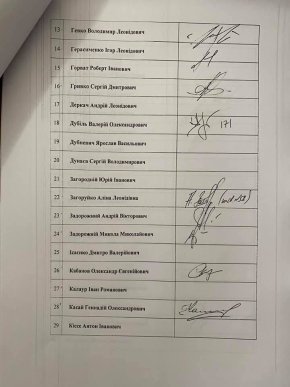 13 Гевко Володимир Леонідович
14 Герасименко Ігор Леонідович
15 Горват Роберт Іванович
16 Гривко Сергій Дмитрович
17 Деркач Андрій Леонідович
18 Дубіль Валерій Олександрович 171
19 Дубневич Ярослав Васильович
20 Думчев Сергій Володимирович
21 Загородній Юрій Іванович
22 Загоруйко Аліна Леонідівна
23 Задорожний Андрій Вікторович
24 Задорожній Микола Миколайович
25 Ісаєнко Дмитро Валерійович
26 Кабанов Олександр Євгенійович
27 Калаур Іван Романович
28 Касай Геннадій Олександрович
29 Кіссе Антон Іванович